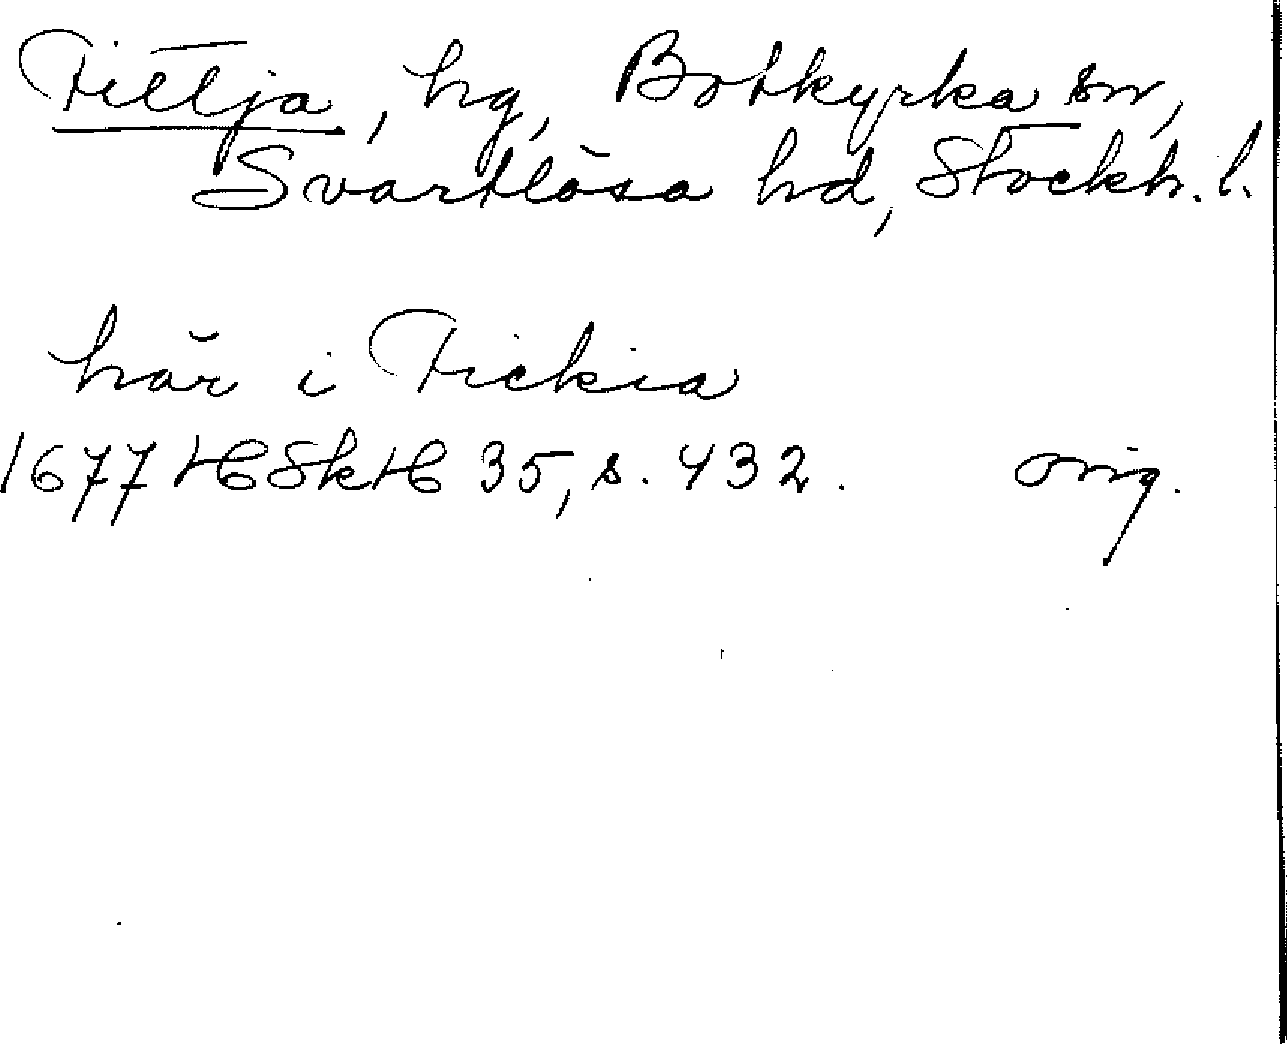 Fittja, hg, Botkyrka sn,
Svartlösa hd, Stockh. l.
här i Fickia
1677 HSkH 35, s. 432. orig.